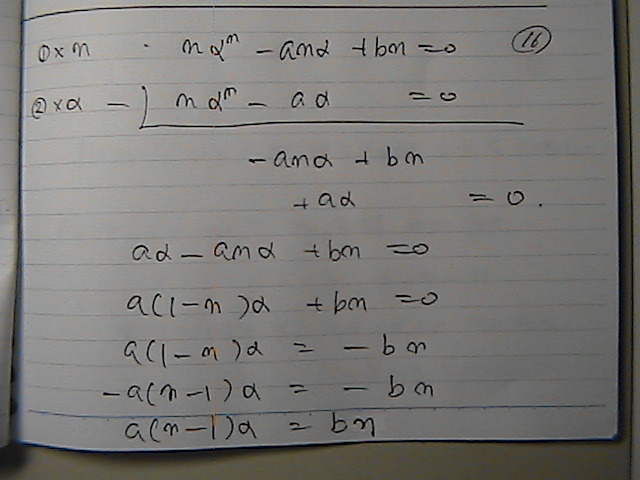 ①×n · nαⁿ - anα + bn = 0 ⑯
②×α -) nαⁿ - aα = 0
- anα + bn
+ aα = 0.
aα - anα + bn = 0
a(1-n)α + bn = 0
a(1-n)α = - bn
-a(n-1)α = - bn
a(n-1)α = bn